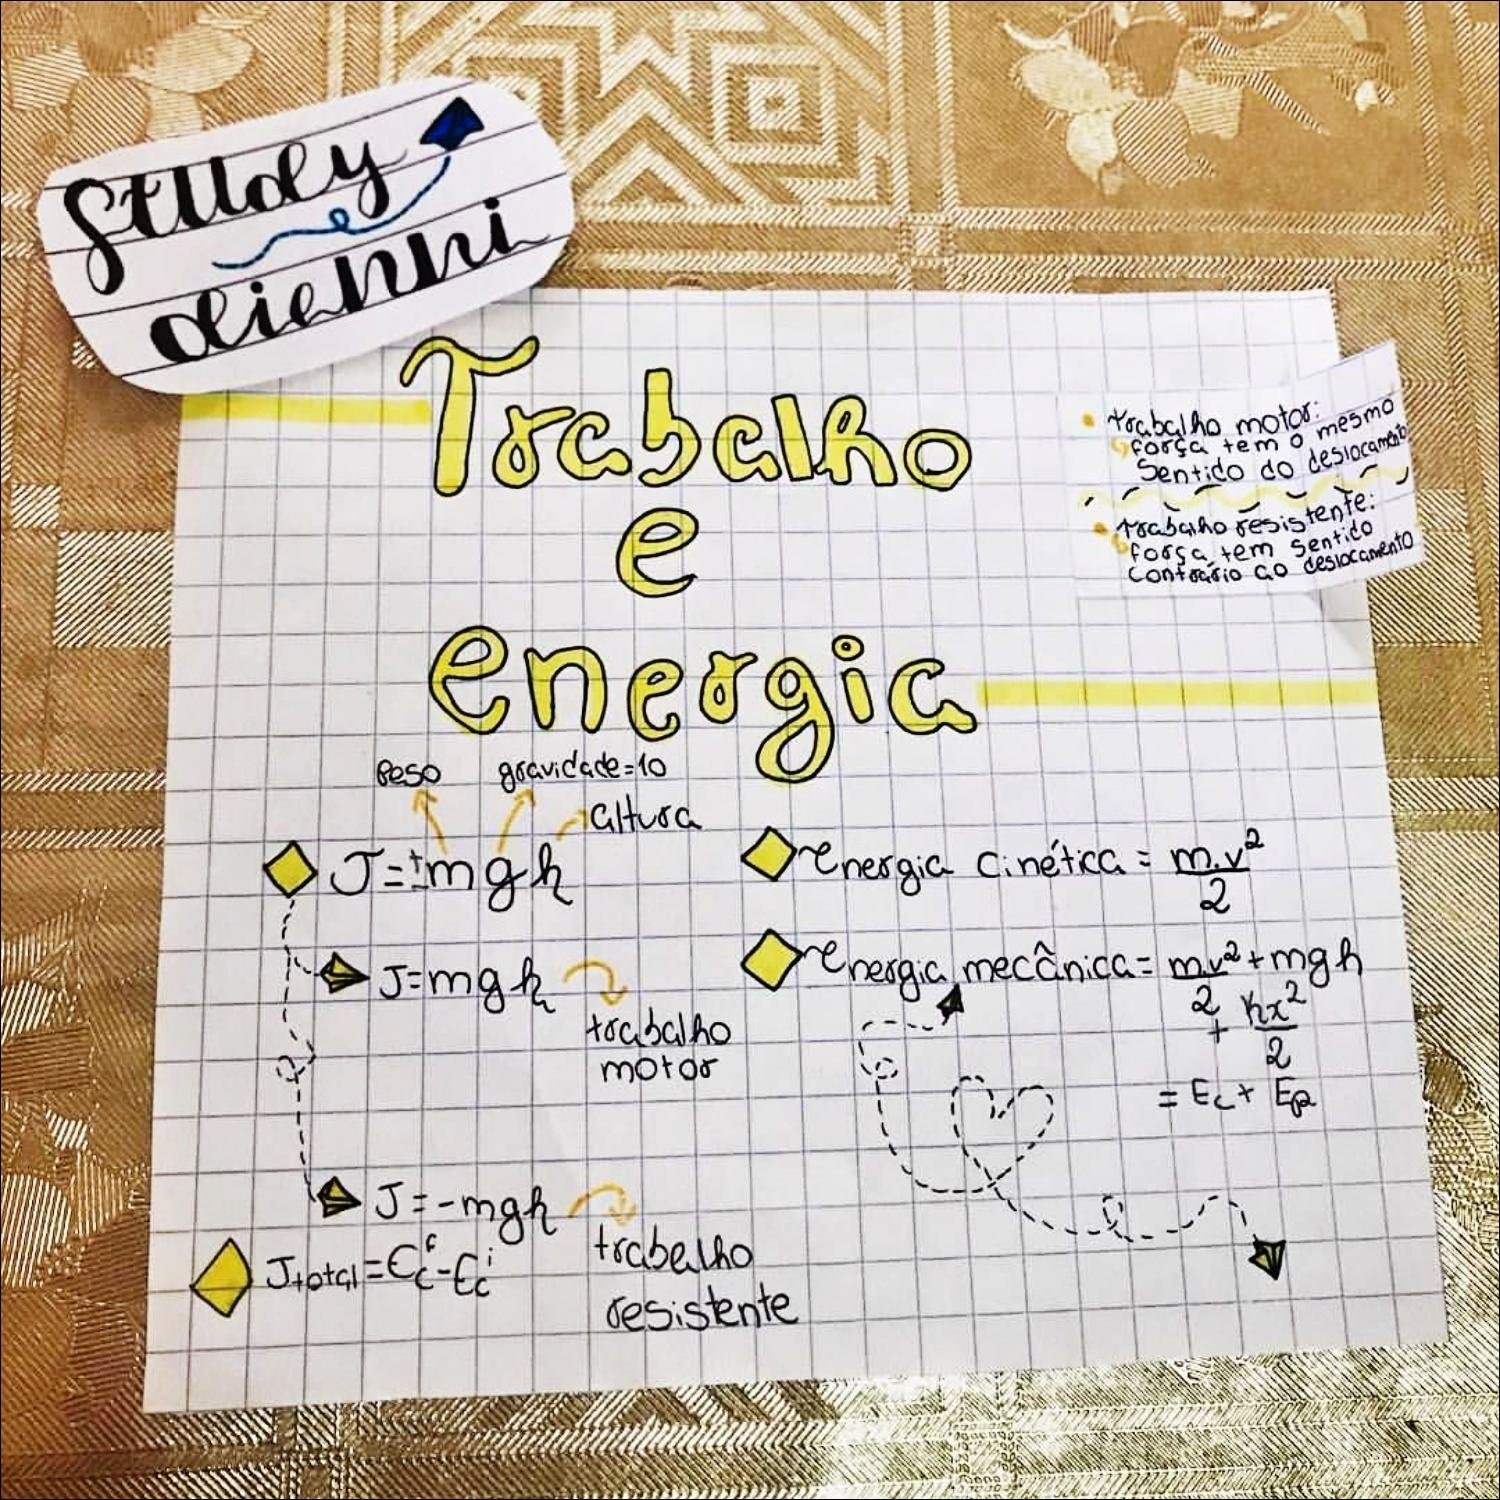 Study
dienni
Trabalho
e
energia
• trabalho motor:
força tem o mesmo
sentido do deslocamento
• trabalho resistente:
força tem sentido
contrário ao deslocamento
Peso
gravidade=10
altura
J=±mgh
J=mgh
trabalho
motor
J=-mgh
trabalho
resistente
Jtotal=Ecᶠ-Ecⁱ
energia cinética = m.v²/2
energia mecânica= mv²/2 + mgh
+ kx²/2
= Ec + Ep